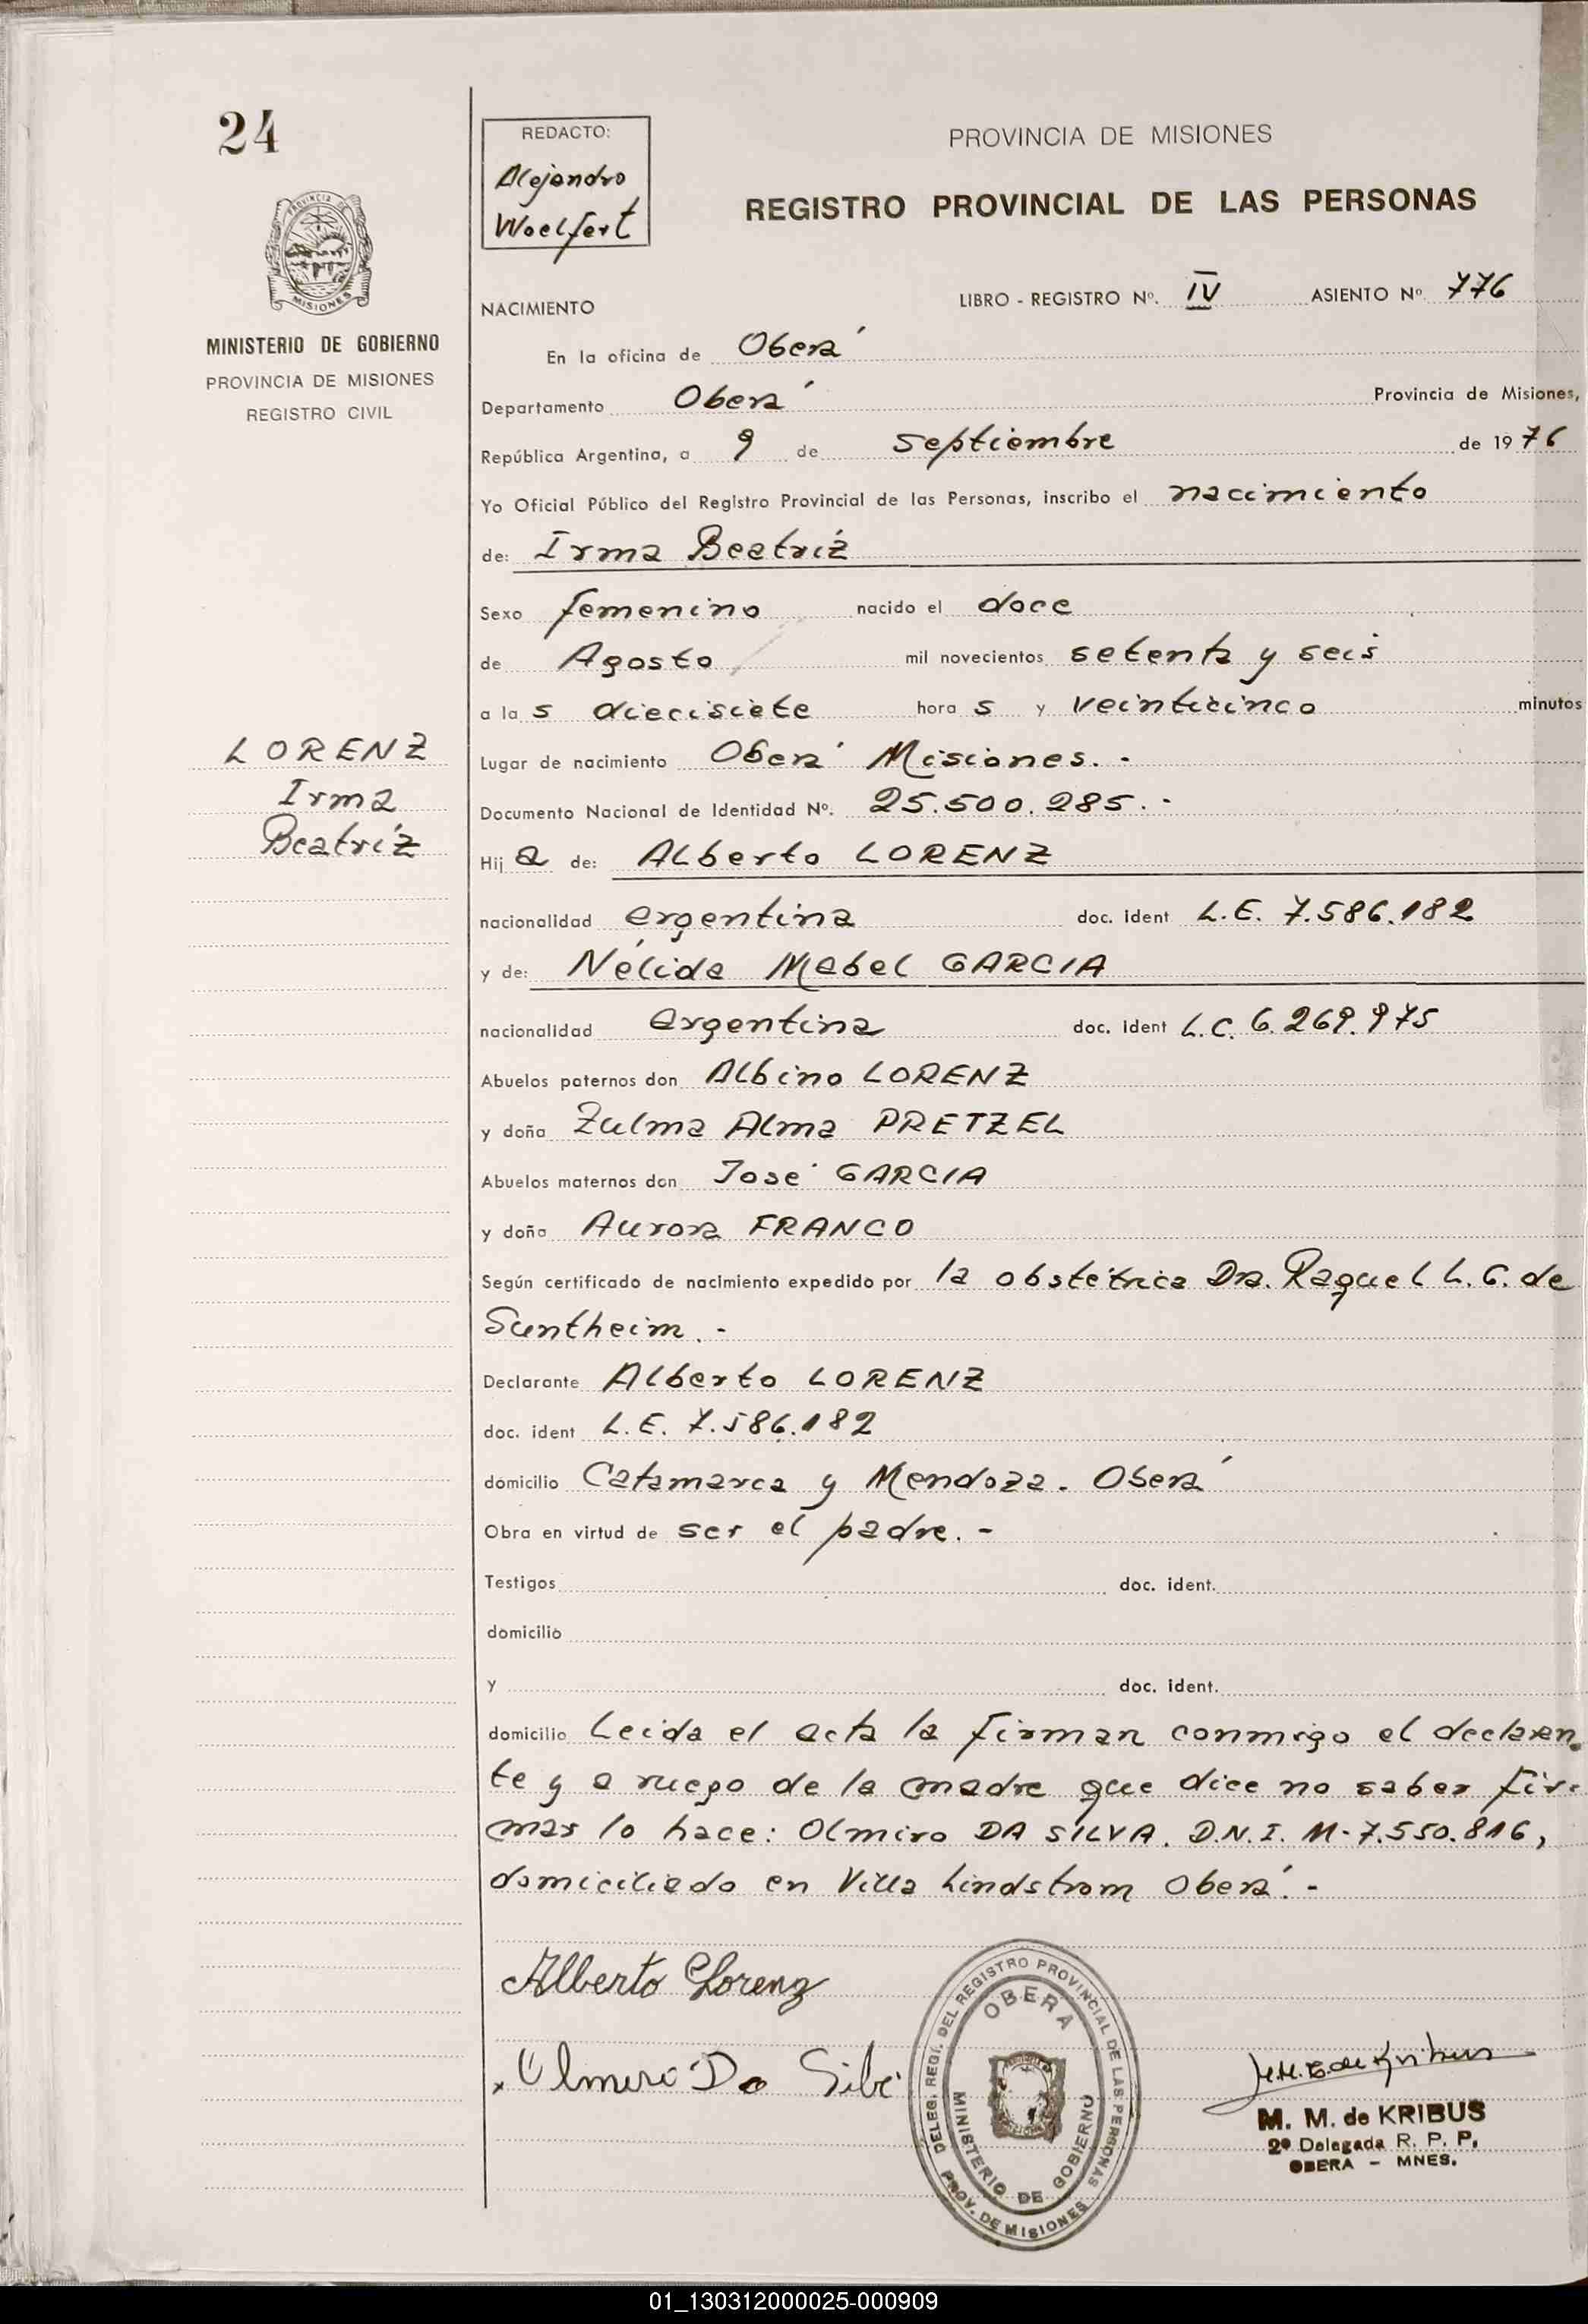 24
PROVINCIA DE
MISIONES
MINISTERIO DE GOBIERNO
PROVINCIA DE MISIONES
REGISTRO CIVIL
LORENZ
Irma
Beatríz
REDACTO:
Alejandro
Woelfert
PROVINCIA DE MISIONES
REGISTRO PROVINCIAL DE LAS PERSONAS
NACIMIENTO LIBRO - REGISTRO Nº. IV ASIENTO Nº 776
En la oficina de Oberá
Departamento Oberá Provincia de Misiones,
República Argentina, a 9 de septiembre de 1976
Yo Oficial Público del Registro Provincial de las Personas, inscribo el nacimiento
de: Irma Beatríz
Sexo femenino nacido el doce
de Agosto mil novecientos setenta y seis
a las diecisiete horas y veinticinco minutos
Lugar de nacimiento Oberá Misiones. -
Documento Nacional de Identidad Nº. 25.500.285. -
Hija de: Alberto LORENZ
nacionalidad argentina doc. ident L.E. 7.586.182
y de: Nélida Mabel GARCIA
nacionalidad argentina doc. ident L.C. 6.269.975
Abuelos paternos don Albino LORENZ
y doña Zulma Alma PRETZEL
Abuelos maternos don José GARCIA
y doña Aurora FRANCO
Según certificado de nacimiento expedido por la obstétrica Dra. Raquel L. G. de
Suntheim. -
Declarante Alberto LORENZ
doc. ident L.E. 7.586.182
domicilio Catamarca y Mendoza - Oberá
Obra en virtud de ser el padre. -
Testigos doc. ident.
domicilio
y doc. ident.
domicilio Leida el acta la firman conmigo el declaran-
te y a ruego de la madre que dice no saber fir-
mar lo hace: Olmiro DA SILVA. D.N.I. M-7.550.816,
domiciliado en Villa Lindstrom Oberá. -
Alberto Lorenz
Olmiro Da Silv
DELEG. REGI. DEL REGISTRO PROVINCIAL DE LAS PERSONAS
OBERA
MINISTERIO DE GOBIERNO
PROV. DE MISIONES
M. M. de Kribus
M. M. de KRIBUS
2ª Delegada R. P. P.
OBERA - MNES.
01_130312000025-000909